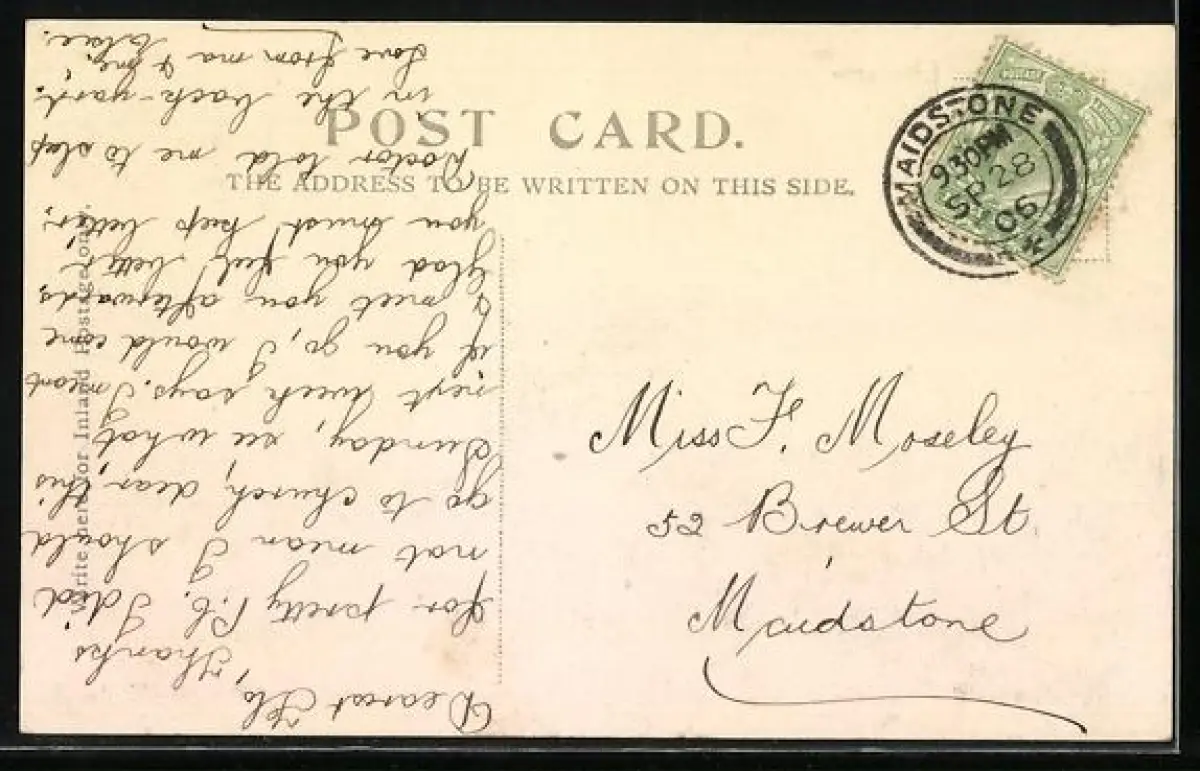 POST CARD.
THE ADDRESS TO BE WRITTEN ON THIS SIDE.
MAIDSTONE
9 30 PM
SP 28
06
Miss F. Moseley
52 Brewer St.
Maidstone
Dearest Flo,
Thanks
for pretty P.C. I did
not mean I should
go to church, dear, this
Sunday, see what
next week says. I meant
if you go, I would come
& meet you afterwards
Glad you feel better
you must keep better.
Doctor told me to slap
in the back-yard.
Love from ma & me.
Elsie.
for Inland Postage only.